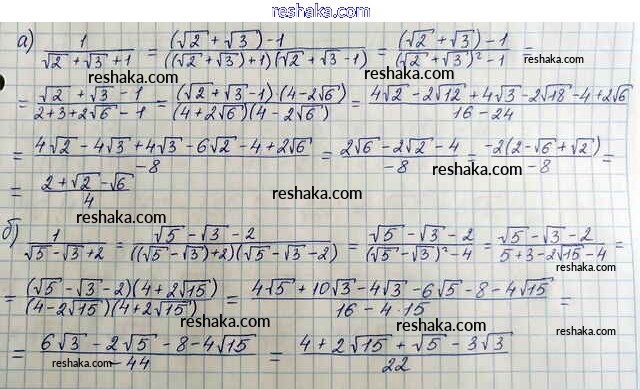 reshaka.com
а) 1/(√2 + √3 + 1) = ((√2 + √3) - 1)/(((√2 + √3) + 1)(√2 + √3 - 1)) = ((√2 + √3) - 1)/((√2 + √3)² - 1) =
reshaka.com reshaka.com reshaka.com
= (√2 + √3 - 1)/(2 + 3 + 2√6 - 1) = ((√2 + √3 - 1)(4 - 2√6))/((4 + 2√6)(4 - 2√6)) = (4√2 - 2√12 + 4√3 - 2√18 - 4 + 2√6)/(16 - 24)
reshaka.com
= (4√2 - 4√3 + 4√3 - 6√2 - 4 + 2√6)/(-8) = (2√6 - 2√2 - 4)/(-8) = (-2(2 - √6 + √2))/(-8) =
reshaka.com reshaka.com
= (2 + √2 - √6)/4
reshaka.com reshaka.com
б) 1/(√5 - √3 + 2) = (√5 - √3 - 2)/(((√5 - √3) + 2)(√5 - √3 - 2)) = (√5 - √3 - 2)/((√5 - √3)² - 4) = (√5 - √3 - 2)/(5 + 3 - 2√15 - 4) =
reshaka.com
= ((√5 - √3 - 2)(4 + 2√15))/((4 - 2√15)(4 + 2√15)) = (4√5 + 10√3 - 4√3 - 6√5 - 8 - 4√15)/(16 - 4·15) =
reshaka.com reshaka.com reshaka.com
= (6√3 - 2√5 - 8 - 4√15)/(-44) = (4 + 2√15 + √5 - 3√3)/22
reshaka.com reshaka.com
reshaka.com